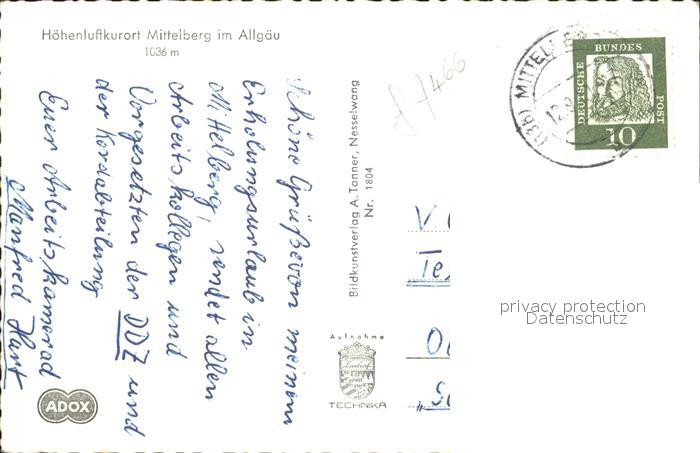 Höhenluftkurort Mittelberg im Allgäu
1036 m
Schöne Grüße von meinem
Erholungsurlaub in
Mittelberg, sendet allen
Arbeitskollegen und
Vorgesetzten der DDZ und
der Kordabteilung
Euer Arbeitskamerad
Manfred
ADOX
Bildkunstverlag A. Tanner, Nesselwang
Nr. 1804
Aufnahme
Linhof
TECHNIKA
f 7466
(13b) MITTELBERG
12.
DEUTSCHE BUNDES POST
10
V.
Te
O
privacy protection
Datenschutz